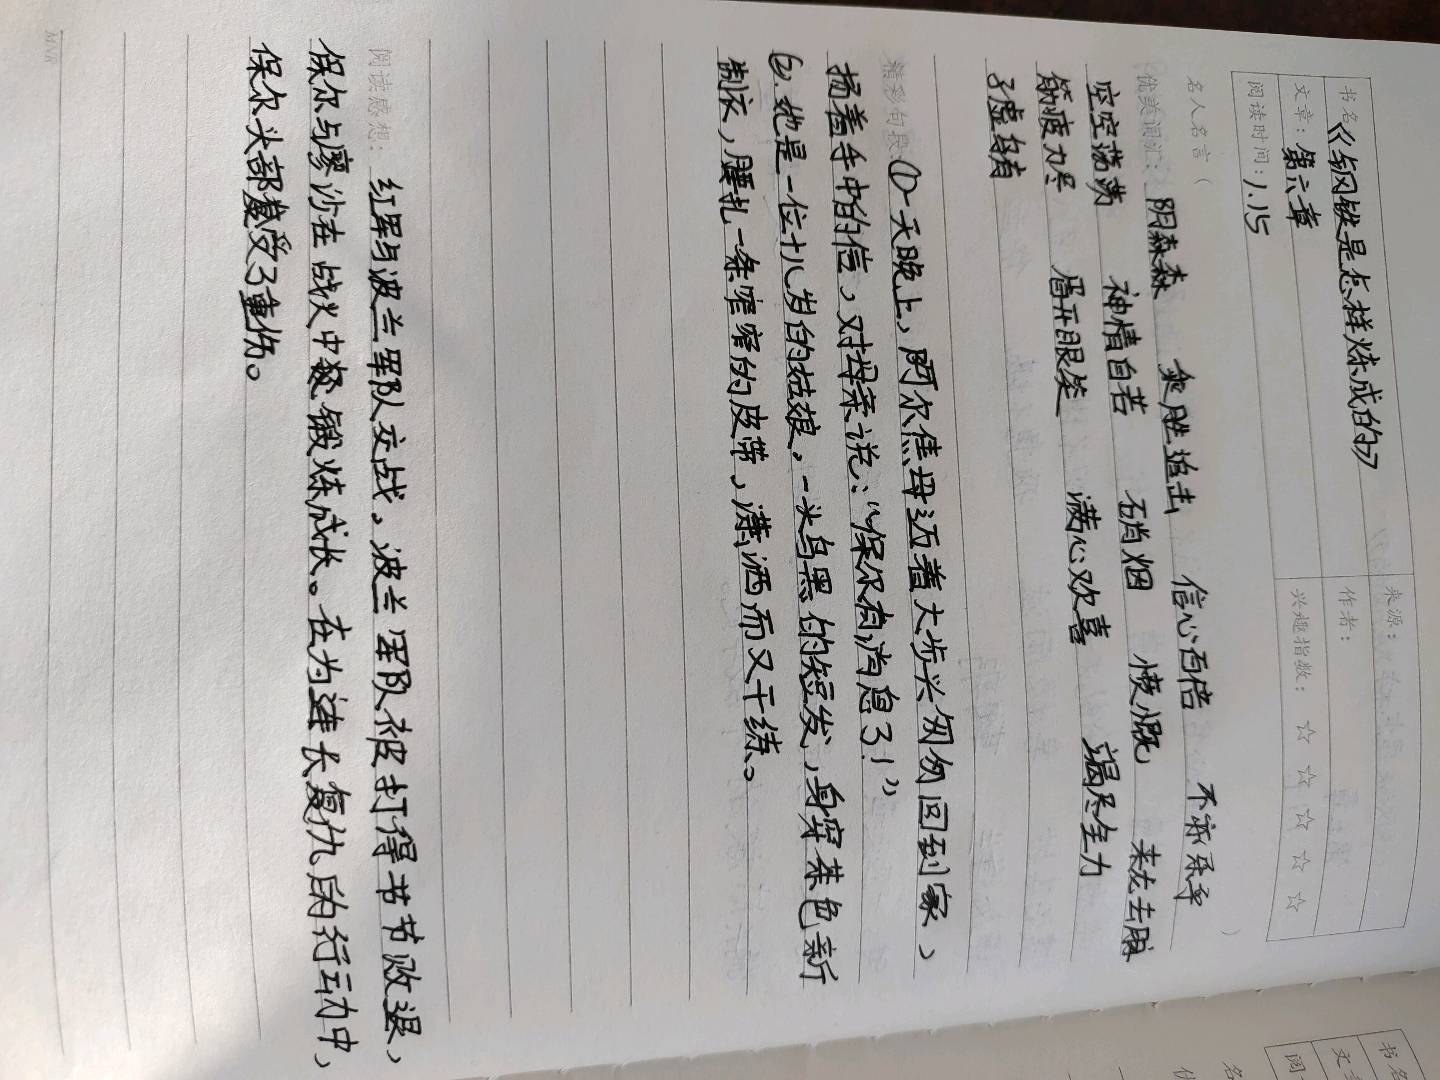 书名:《钢铁是怎样炼成的》
来源:
文章:第六章
作者:
阅读时间:1.15
兴趣指数:☆ ☆ ☆ ☆ ☆
名人名言( )
优美词汇: 阴森森 乘胜追击 信心百倍 不亦乐乎
空空荡荡 神情自若 硝烟 愤慨 来龙去脉
筋疲力尽 眉开眼笑 满心欢喜 竭尽全力
子虚乌有
精彩句段 ①一天晚上,阿尔焦母迈着大步兴匆匆回到家,
扬着手中的信,对母亲说:“保尔有消息了!”
②.她是一位十八岁的姑娘。一头乌黑的短发,身穿茶色新
制衣,腰扎一条窄窄的皮带,潇洒而又干练。
阅读感想: 红军与波兰军队交战。波兰军队被打得节节败退,
保尔与廖沙在战火中锻炼成长。在为连长复仇后的行动中,
保尔头部受了重伤。
书名
文章
阅
名